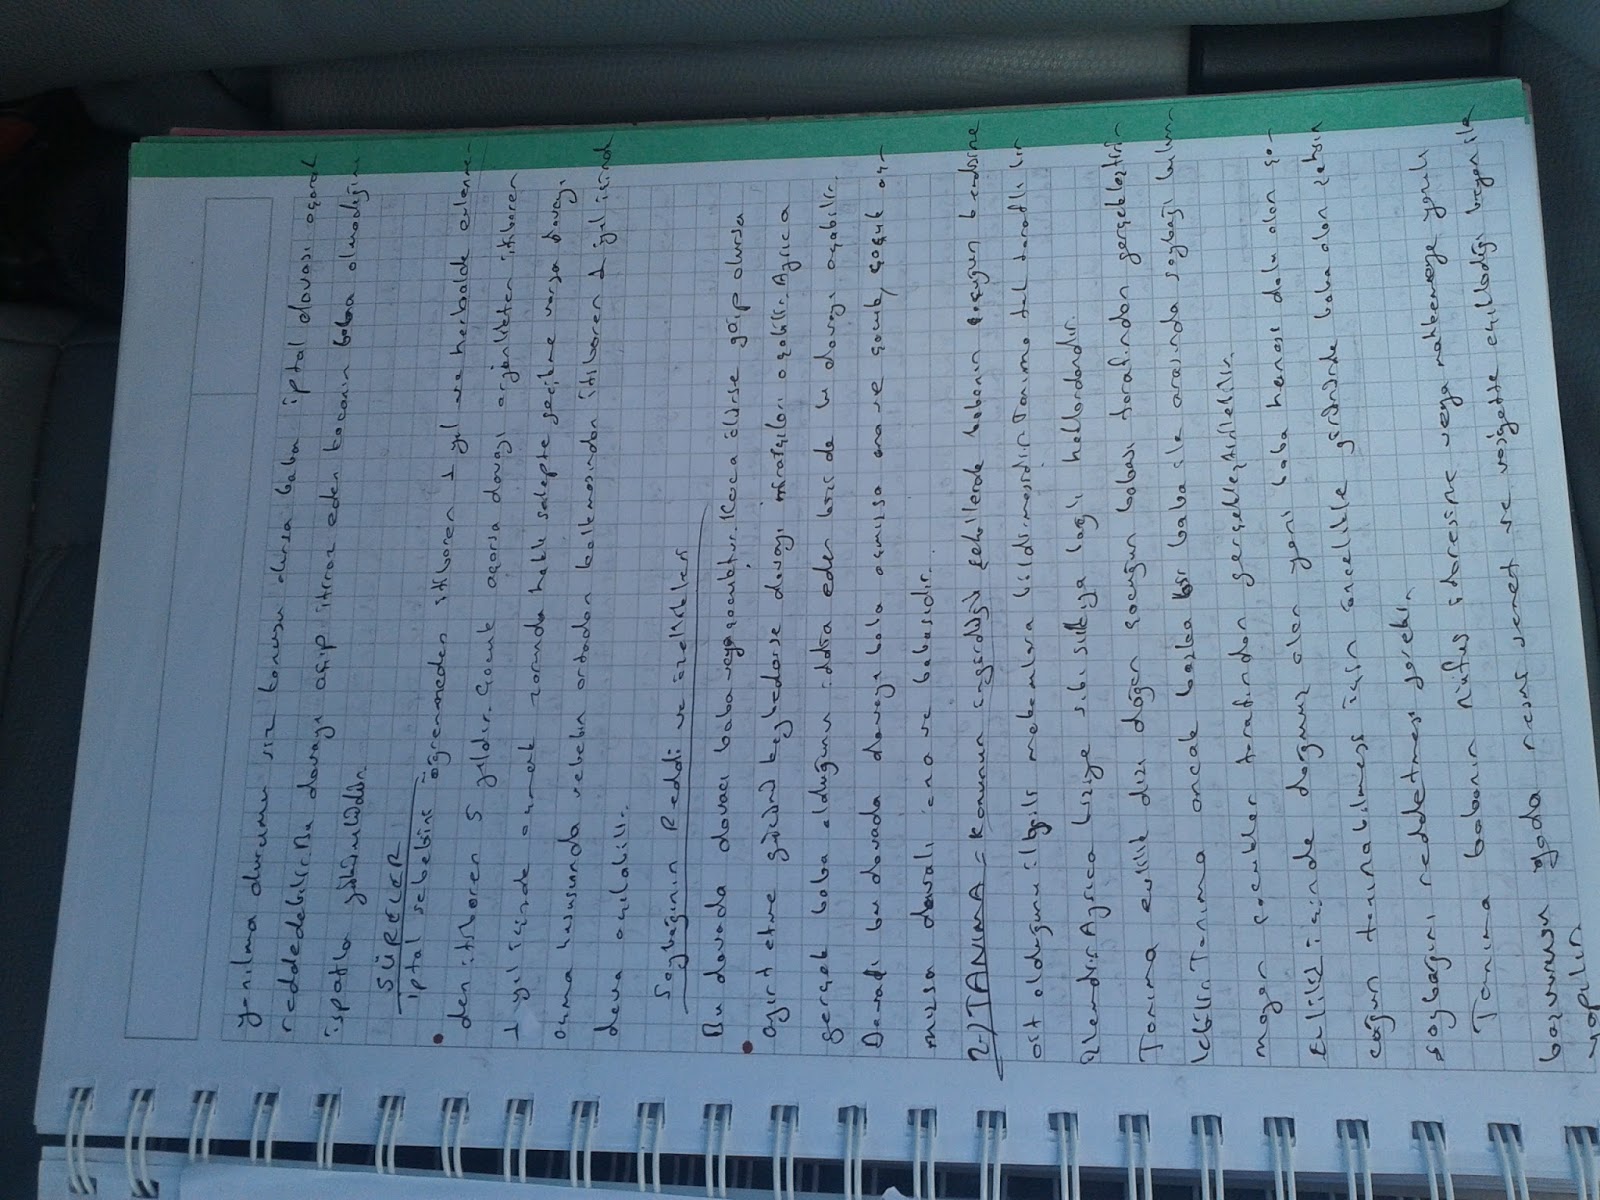 yanılma durumu söz konusu olursa baba iptal davası açarak
reddedebilir. Bu davayı açıp itiraz eden kocanın baba olmadığını
ispatla yükümlüdür.
SÜRELER
iptal sebebini öğrenmeden itibaren 1 yıl ve herhalde evlenme-
den itibaren 5 yıldır. Çocuk açarsa davayı erginlikten itibaren
1 yıl içinde açmak zorunda haklı sebeple gecikme varsa davayı
açma hususunda sebebin ortadan kalkmasından itibaren 1 yıl içinde
dava açılabilir.
Soybağının Reddi ve özellikleri
Bu davada davacı baba veya çocuktur. Koca ölürse gaip olursa
ayırt etme gücünü kaybederse davayı mirasçıları açabilir. Ayrıca
gerçek baba olduğunu iddia eden kişi de bu davayı açabilir.
Davalı bu davada davayı baba açmışsa ana ve çocuk, çocuk aç-
mışsa davalı ana ve babasıdır.
2-) TANIMA = Kanunun öngördüğü şekillerde babanın çocuğun kendisine
ait olduğunu ilgili makamlara bildirmesidir. Tanıma tek taraflı bir
işlemdir. Ayrıca kişiye sıkı sıkıya bağlı haklardandır.
Tanıma evlilik dışı doğan çocuğun babası tarafından gerçekleştiri-
lebilir. Tanıma ancak başka bir baba ile arasında soybağı bulun-
mayan çocuklar tarafından gerçekleştirilebilir.
Evlilik içinde doğmuş olan yani baba hanesi dolu olan ço-
cuğun tanınabilmesi için öncelikle görünürde baba olan kişinin
soybağını reddetmesi gerekir.
Tanıma babanın nüfus idaresine veya mahkemeye yazılı
başvurusu yada resmi senet ve vasiyette açıkladığı beyan ile
yapılır.